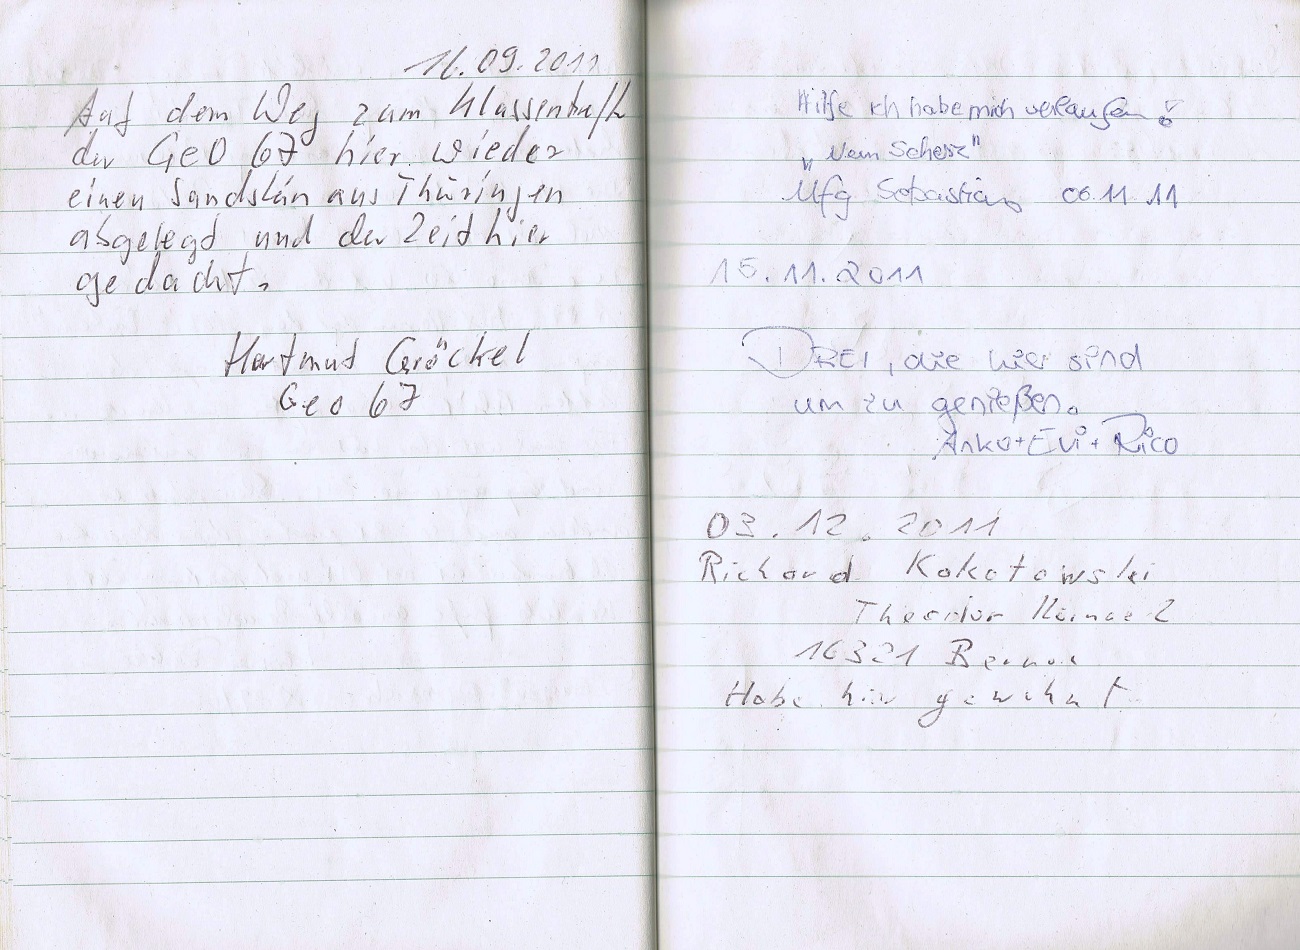 16.09.2011
Auf dem Weg zum Klassentreffen
der GEO 67 hier wieder
einen Sandstein aus Thüringen
abgelegt und der Zeit hier
gedacht.
Hartmut Gröckel
Geo 67
Hilfe ich habe mich verlaufen!
"Nein Scherz"
Mfg Sebastian 06.11.11
15.11.2011
DREI, die hier sind
um zu genießen.
Anko+Evi+Rico
03.12.2011
Richard Kokotowski
Theodor 2
16321 Bernau
Habe hier gewohnt